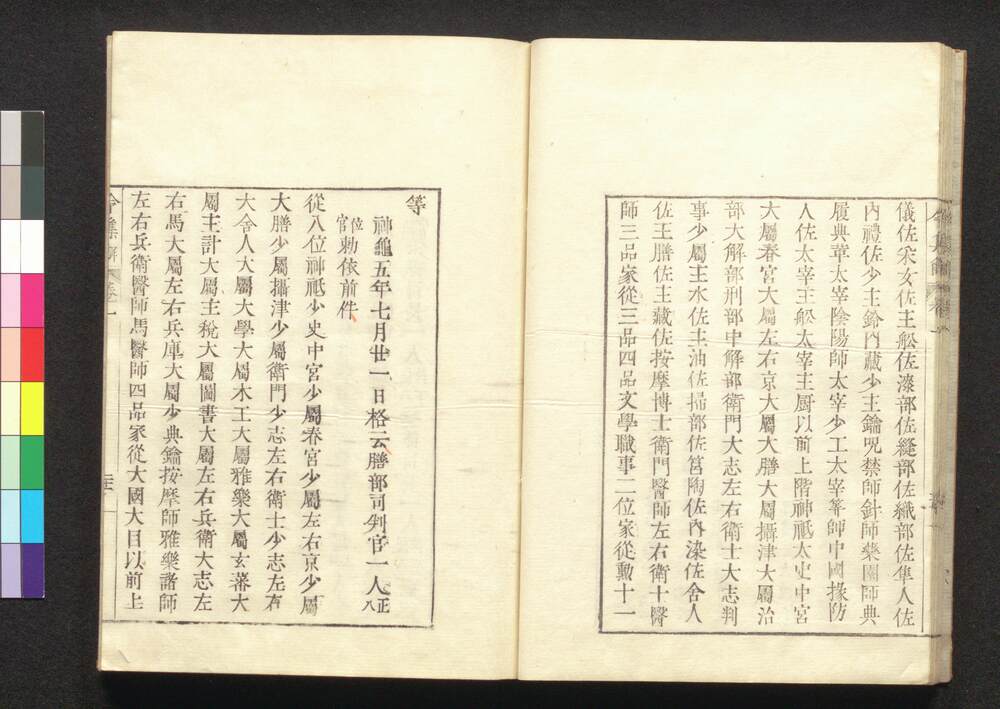 儀佐采女佐主舩佐漆部佐縫部佐織部佐隼人佐
內禮佐少主鈴內藏少主鑰咒禁師針師藥園師典
履典革太宰陰陽師太宰少工太宰筭師中國掾防
人佐太宰主舩太宰主厨以前上階神祗太史中宮
大屬春宮大屬左右京大屬大膳大屬攝津大屬治
部大解部刑部中解部衛門大志左右衛士大志判
事少屬主水佐主油佐掃部佐筥陶佐內染佐舍人
佐主膳佐主藏佐按摩博士衛門醫師左右衛士醫
師三品家從三品四品文學職事二位家從勳十一
等
神龜五年七月廿一日格云膳部司判官一人正八
位官勅依前件
從八位神祗少史中宮少屬春宮少屬左右京少屬
大膳少屬攝津少屬衛門少志左右衛士少志左右
大舍人大屬大學大屬木工大屬雅樂大屬玄蕃大
屬主計大屬主稅大屬圖書大屬左右兵衛大志左
右馬大屬左右兵庫大屬少典鑰按摩師雅樂諸師
左右兵衛醫師馬醫師四品家從大國大目以前上